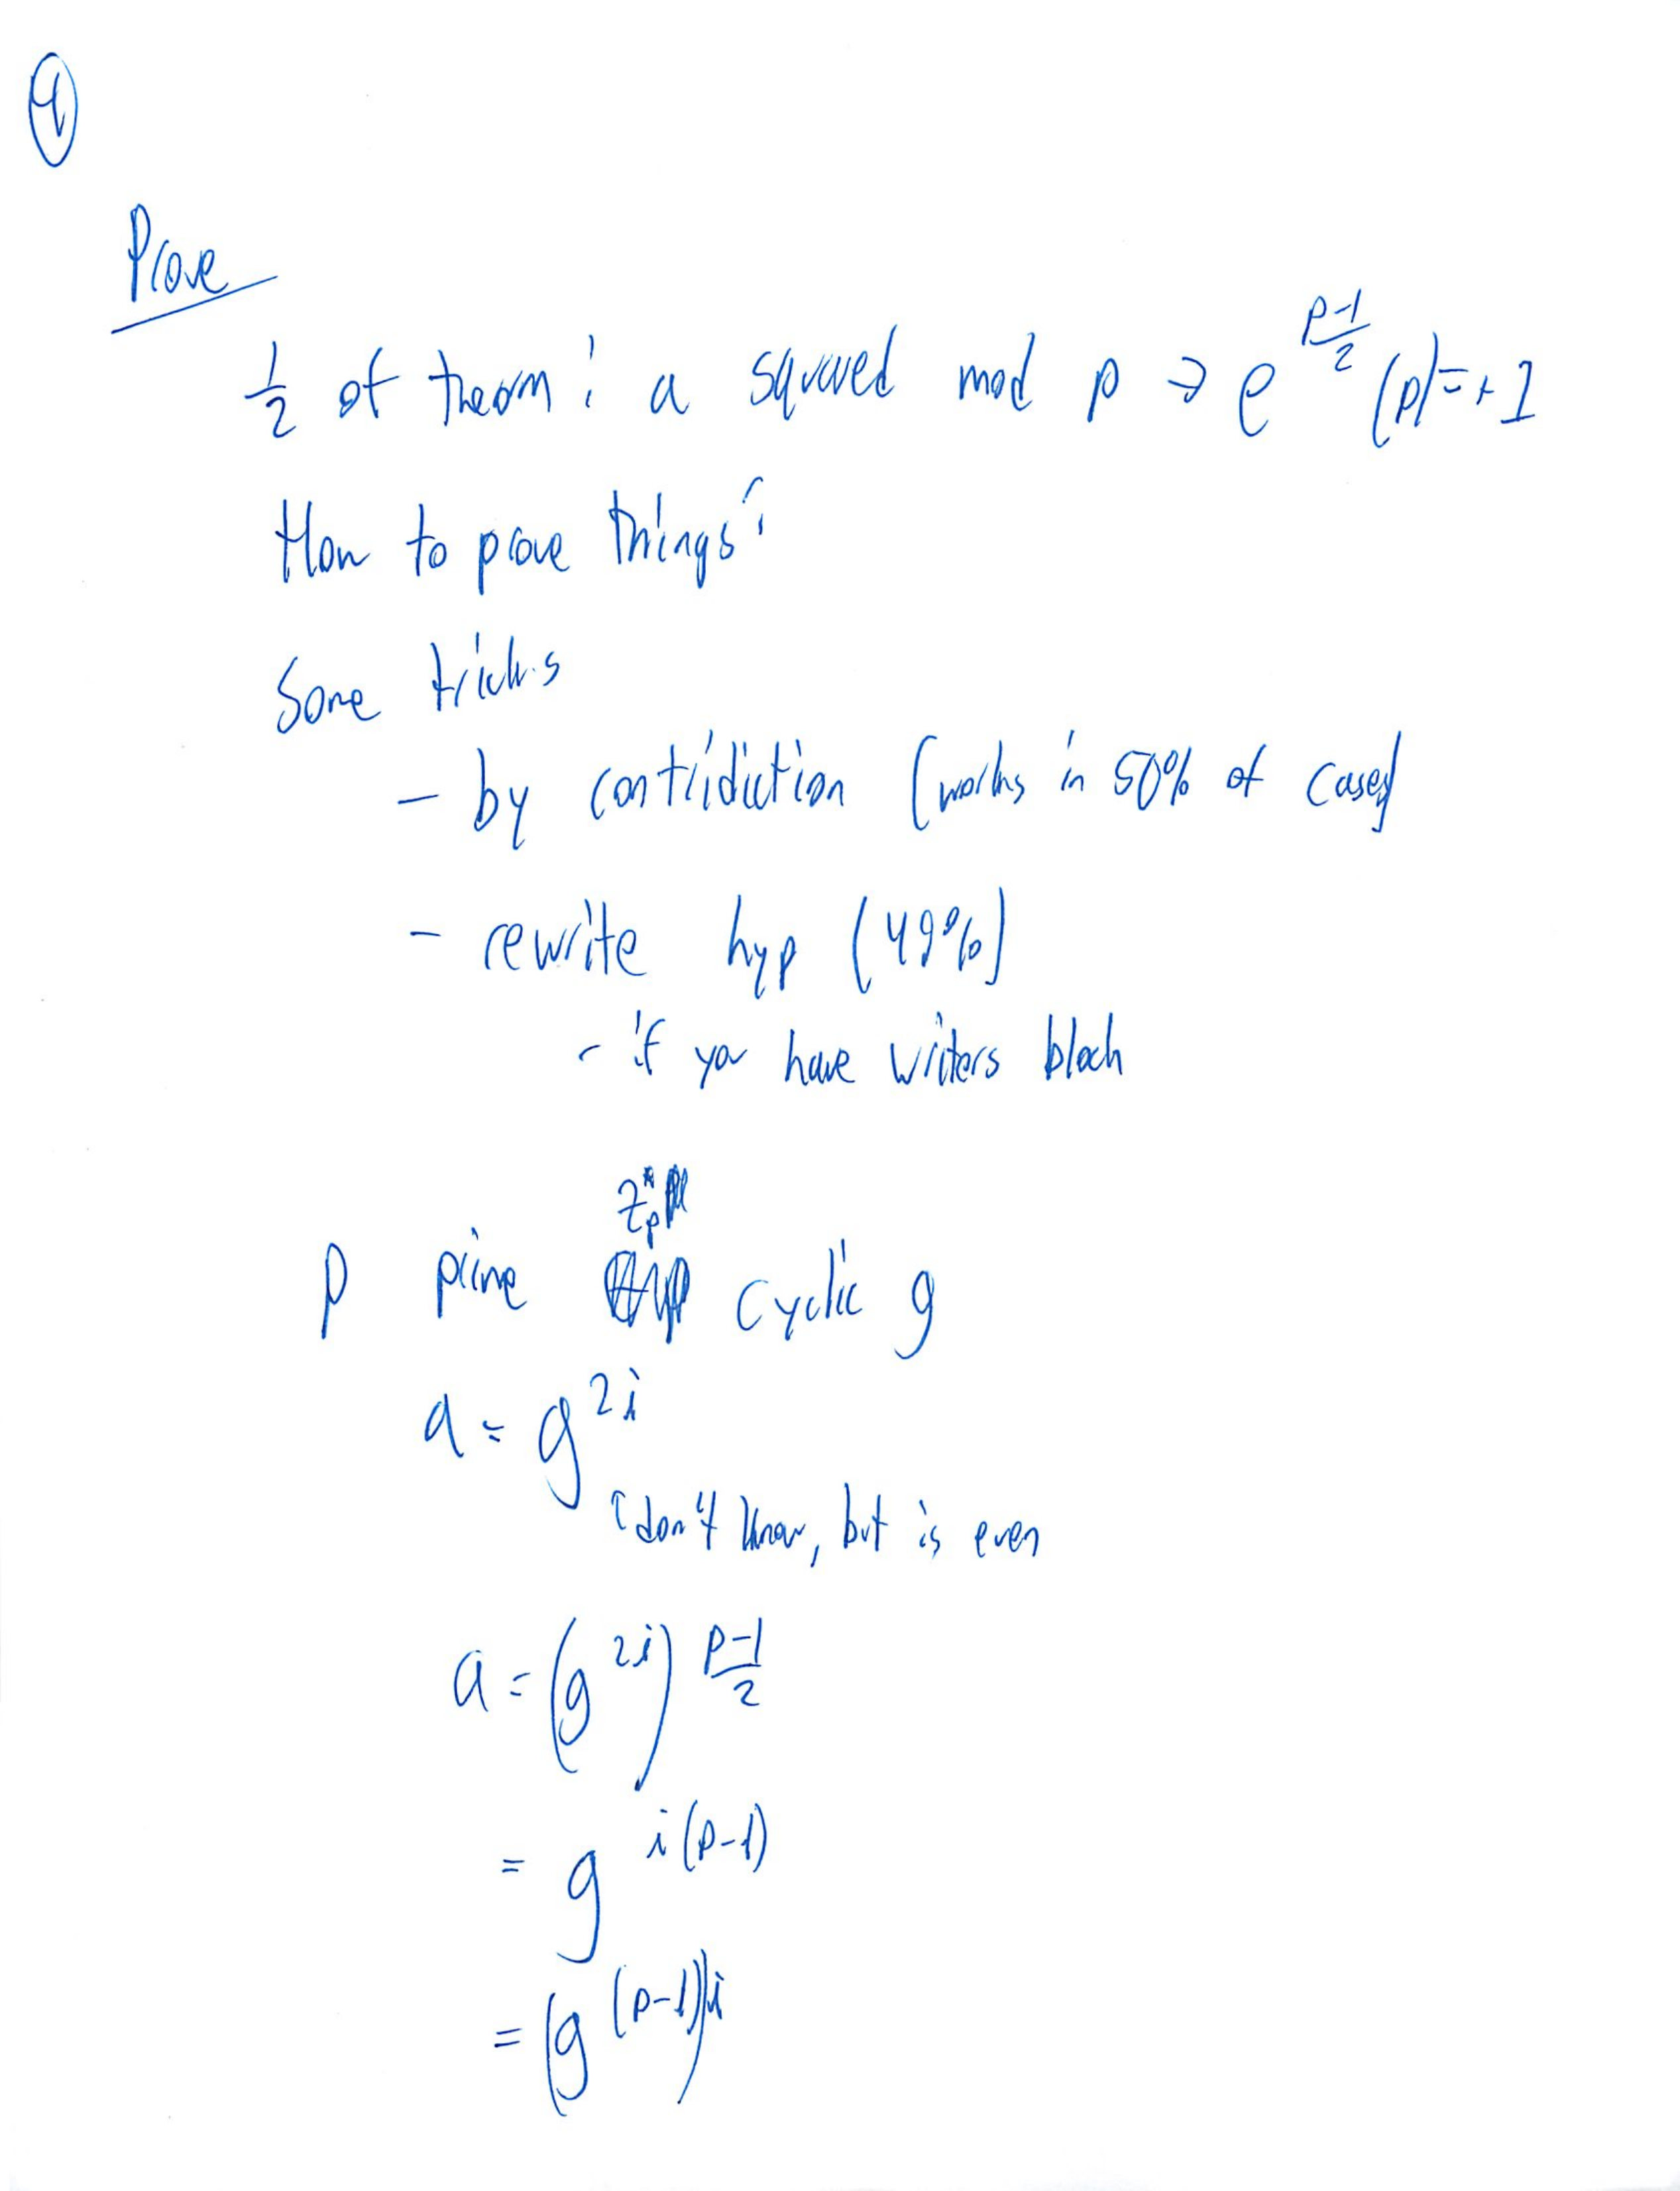 4
Prove
1/2 of theorm: a squared mod p → e^{\frac{p-1}{2}} (p) = +1
How to prove things?
Some tricks
- by contridiction (works in 50% of cases)
- rewrite hyp (49%)
- if you have writers block
Z_p^*
p prime cyclic g
a = g^{2i}
↑ don't know, but is even
a = (g^{2i})^{\frac{p-1}{2}}
= g^{i(p-1)}
= (g^{(p-1)})^i